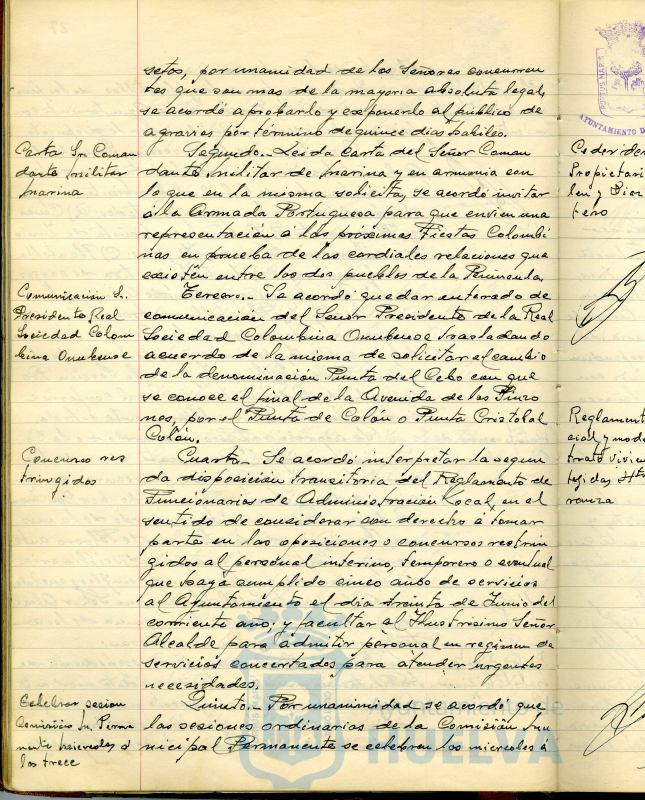 setos, por unanimidad de los Señores concurren
tes que son mas de la mayoria absoluta legal,
se acordó aprobarlo y exponerlo al público de
agravios por término de quince dias habiles.
Carta Sr. Coman
dante militar
marina
Segundo.- Leida carta del Señor Coman
dante militar de marina y en armonia con
lo que en la misma solicita, se acordó invitar
á la Armada Portuguesa para que envien una
representación á las próximas Fiestas Colombi
nas en prueba de las cordiales relaciones que
existen entre los dos pueblos de la Peninsula.
Comunicación Sr.
Presidente Real
Sociedad Colom
bina Onubense
Tercero.- Se acordó quedar enterado de
comunicación del Señor Presidente de la Real
Sociedad Colombina Onubense trasladando
acuerdo de la misma de solicitar el cambio
de la denominación Punta del Cebo con que
se conoce el final de la Avenida de los Pinzo
nes, por el Punta de Colón o Punta Cristobal
Colón.
Concurso res
tringidos
Cuarto.- Se acordó interpretar la segun
da disposición transitoria del Reglamento de
Funcionarios de Administración Local, en el
sentido de considerar con derecho á tomar
parte en las oposiciones o concursos restrin
gidos al personal interino, temporero o eventual
que haya cumplido cinco años de servicios
al Ayuntamiento el dia treinta de Junio del
corriente año; y facultar al Ilustrisimo Señor
Alcalde para admitir personal en regimen de
servicios concertados para atender urgentes
necesidades.
Celebrar sesion
Comisión M. Perma
nente miercoles á
las trece
Quinto.- Por unanimidad se acordó que
las sesiones ordinarias de la Comisión Mu
nicipal Permanente se celebren los miercoles á
Ayuntamiento de
HUELVA
PORTUS MARIS
AYUNTAMIENTO D
Ceder
Propietari
len y
tero
Reglament
cial y mode
trato vivien